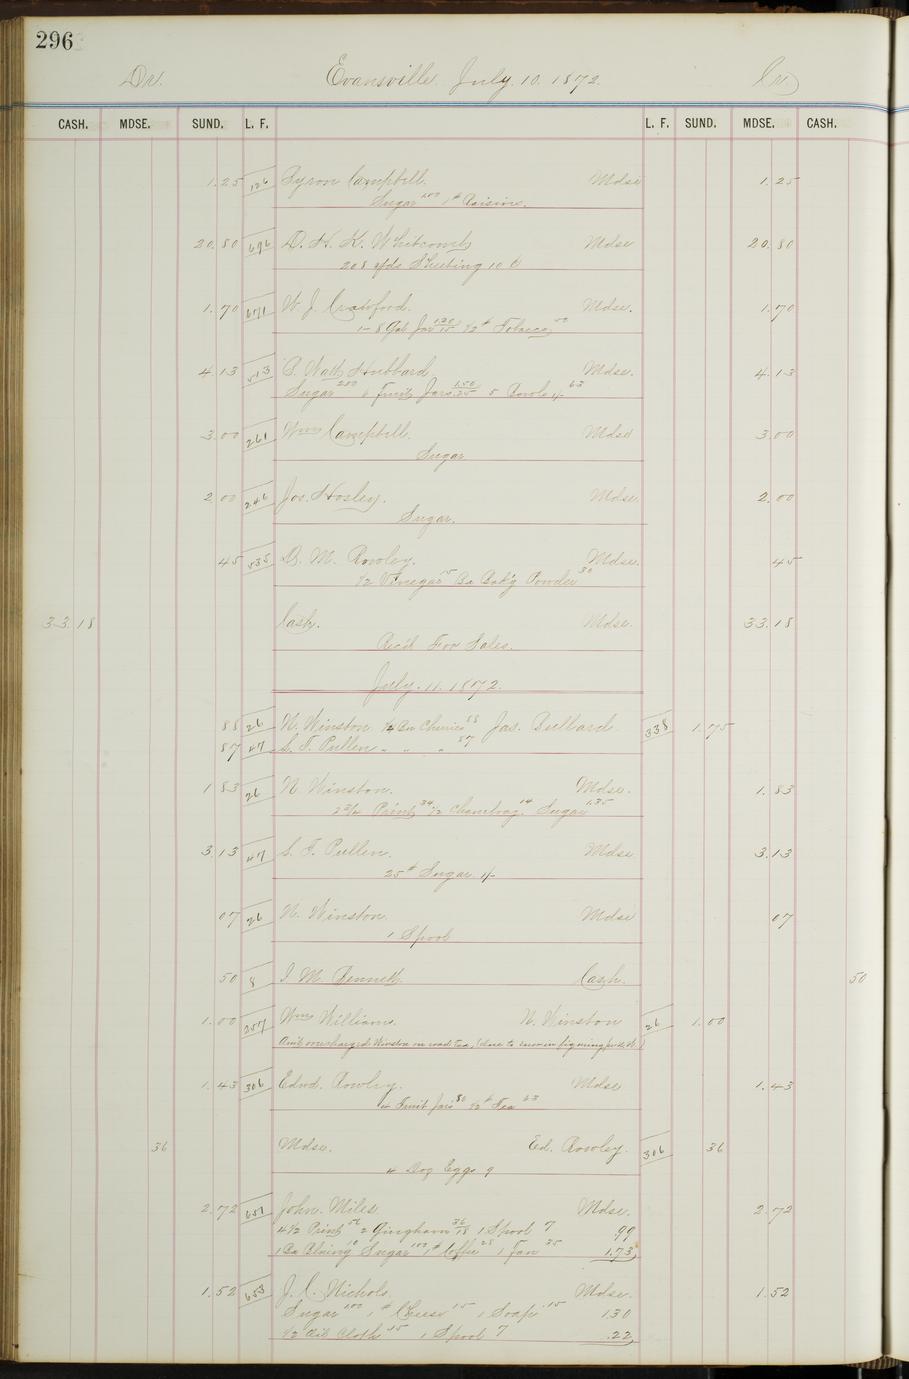 296
Dr. Evansville July 10. 1872. Cr
CASH. MDSE. SUND. L. F. L. F. SUND. MDSE. CASH.
1.25 126 Byron Campbell. Mdse 1.25
Sugar 1.00 1# Raisins.
20.80 696 D. H. K. Whitcomb Mdse 20.80
208 yds Sheeting 10 c
1.70 671 W. J. Crawford. Mdse. 1.70
1-8 Gal Jar 1.20/15 1/2# Tobacco 50
4.13 513 C. Watts Hubbard Mdse. 4.13
Sugar 2.00 6 Fruit Jars 1.50/25 5 Bowls 1/- 63
3.00 261 Wm Campbell. Mdse 3.00
Sugar
2.00 246 Jos. Hosley. Mdse 2.00
Sugar.
45 535 D. M. Rowley. Mdse. 45
1/2 Vinegar 15 Bx Bak'g Powder 30
33.18 Cash. Mdse. 33.18
Rec'd For Sales.
July. 11. 1872.
88 26 N. Winston 1/4 Bu Cherries 88 Jas. Bullard 338 1.75
87 47 S. F. Pullen " " " 87
1 83 26 N Winston. Mdse. 1.83
2 3/4 Print 34 1/2 Chambray 14 Sugar 1.35
3.13 47 S. F. Pullen. Mdse 3.13
25# Sugar 1/-
07 26 N. Winston Mdse 07
1 Spool
50 8 I. M. Bennett. Cash. 50
1.00 257 Wm Williams. N. Winston 26 1.00
Am't overcharged Winston on road tax,
1.43 306 Edwd. Rowley. Mdse 1.43
4 Fruit Jars 80 1/2# Tea 63
36 Mdse. Ed. Rowley 306 36
4 Doz Eggs 9
2.72 651 John. Miles Mdse. 2.72
4 1/2 Print 56 2 Gingham 36/18 1 Spool 7 99
1 Bx Bluing 10 Sugar 1.00 1# Coffee 28 1 Fan 35 1.73
1.52 653 J. C. Nichols. Mdse. 1.52
Sugar 1.00 1# Cheese 15 1 Soap 15 1.30
1/2 Oil Cloth 15 1 Spool 7 .22